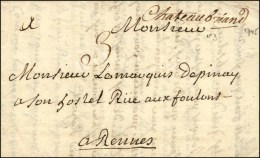 Chateaubriand
Monsieur
5
Monsieur Lamarquis Depinay
a Son hostel Rüe aux foulons
a Rennes